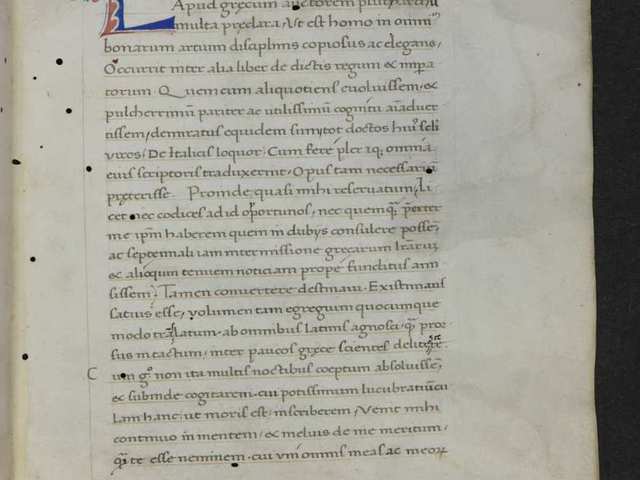 Apud grecum auctorem plutarchū
multa preclara, Vt est homo in omni
bonarum artium disciplinis copiosus ac elegans,
Occurrit inter alia liber de dictis regum & impa
torum. Quem cum aliquotiens euoluissem, &
pulcherrimū pariter ac utilissimū cognitu aīaduer
tissem, demiratus equidem sum, tot doctos hui9 scli
uiros, De Italicis loquor. Cum fere pler aq; omnia
eius scriptoris traduxerint. Opus tam necessariū
preterisse. Proinde quasi mihi reseruatum, Li
cet nec codices ad id oportunos, nec quemq̄ preter
me ipm haberem quem in dubijs consulere possē,
ac septennali iam intermissione grecarum lrārum
& alioqum tenuem noticiam prope funditus ami
sissem, Tamen conuertere destinaui. Existimans
satius esse, uolumen tam egregium quocumque
modo traslatum, ab omnibus Latinis agnosci, q̄ pror
sus intactum, inter paucos grece scientes delitescere
um g° non ita multis noctibus coeptum absoluissē,
& subinde cogitarem, cui potissimum lucubratiūcu
lam hanc, ut moris est, inscriberem, Venit mihi
continuo in mentem, & melius de me meritum,
q̄ te esse neminem, cui uni omnis meas ac meorꝝ